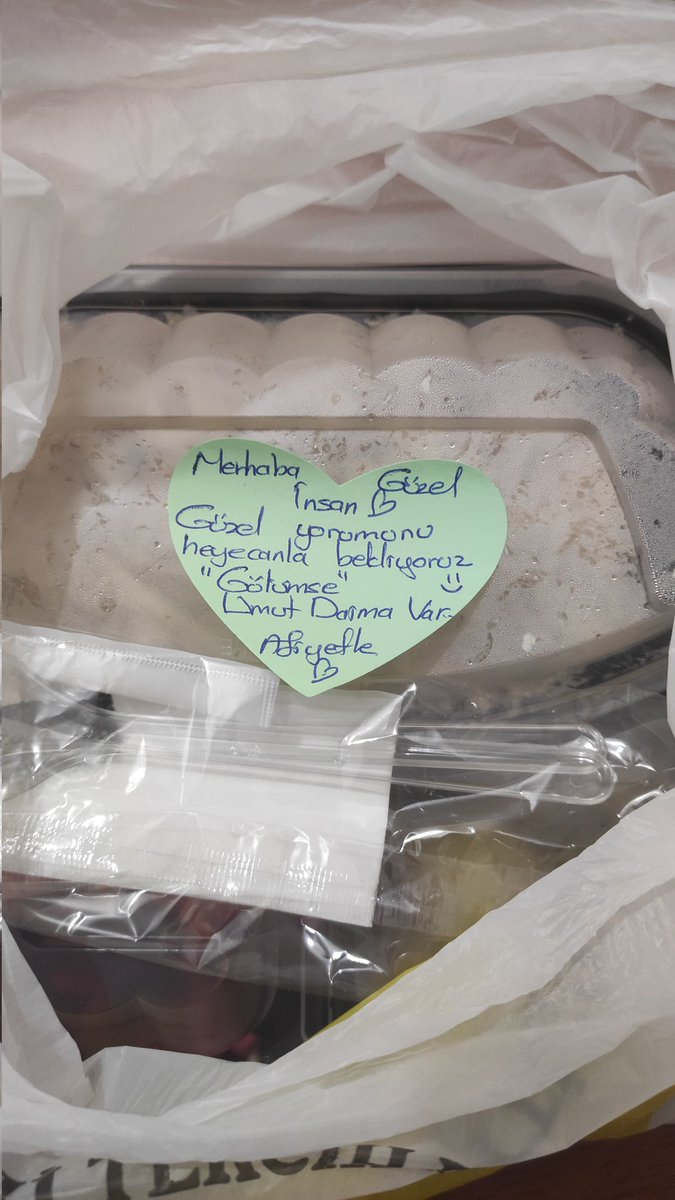 Merhaba Güzel
İnsan
Güzel yorumunu
heyecanla bekliyoruz
"Gülümse"
Umut Daima Var
Afiyetle